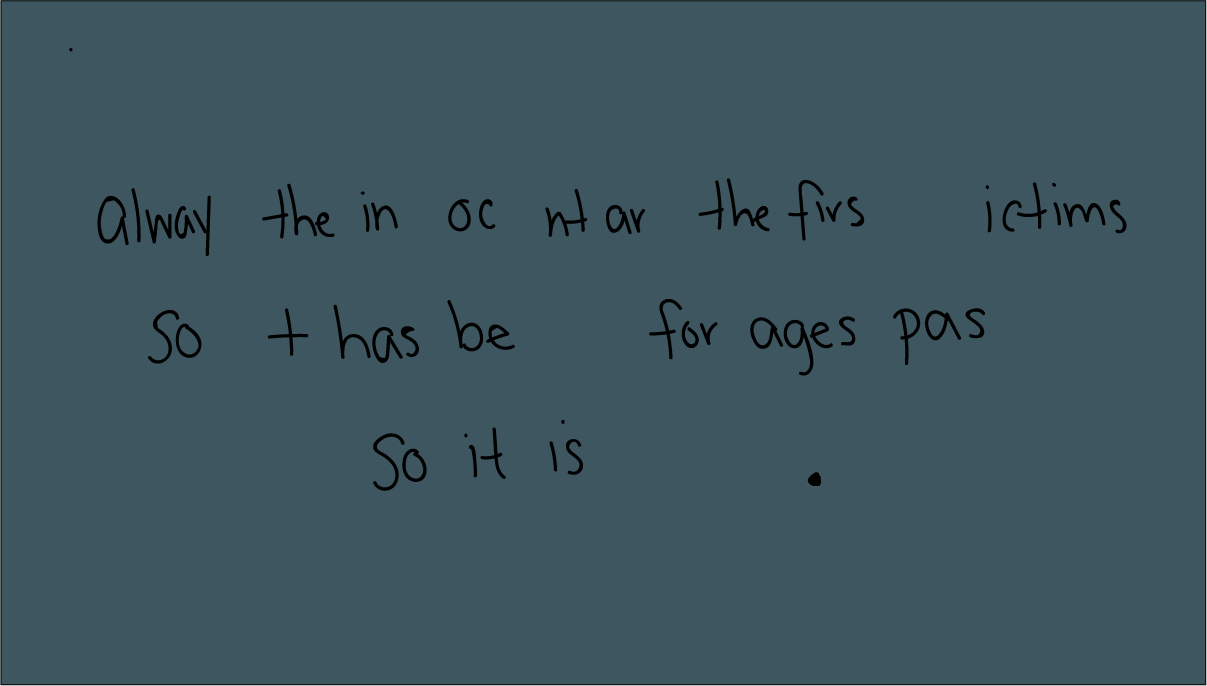 Alway the in oc nt ar the firs ictims
So t has be for ages pas
So it is .